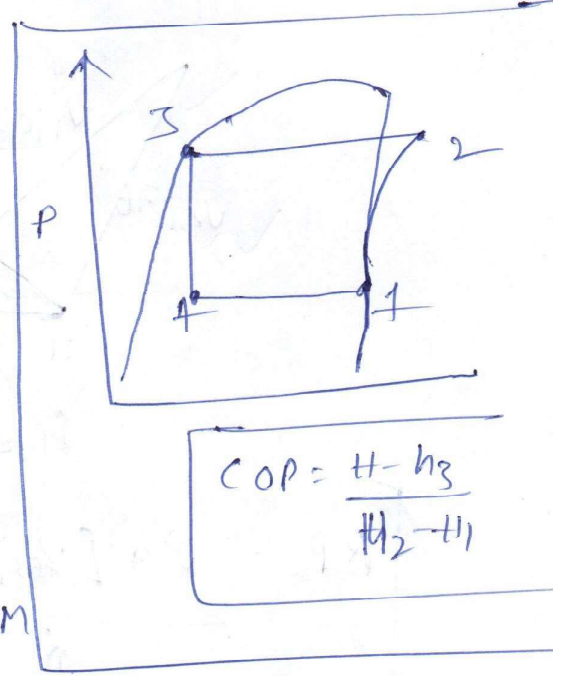 3
2
P
4
1
COP = H - h3
H2 - H1
M